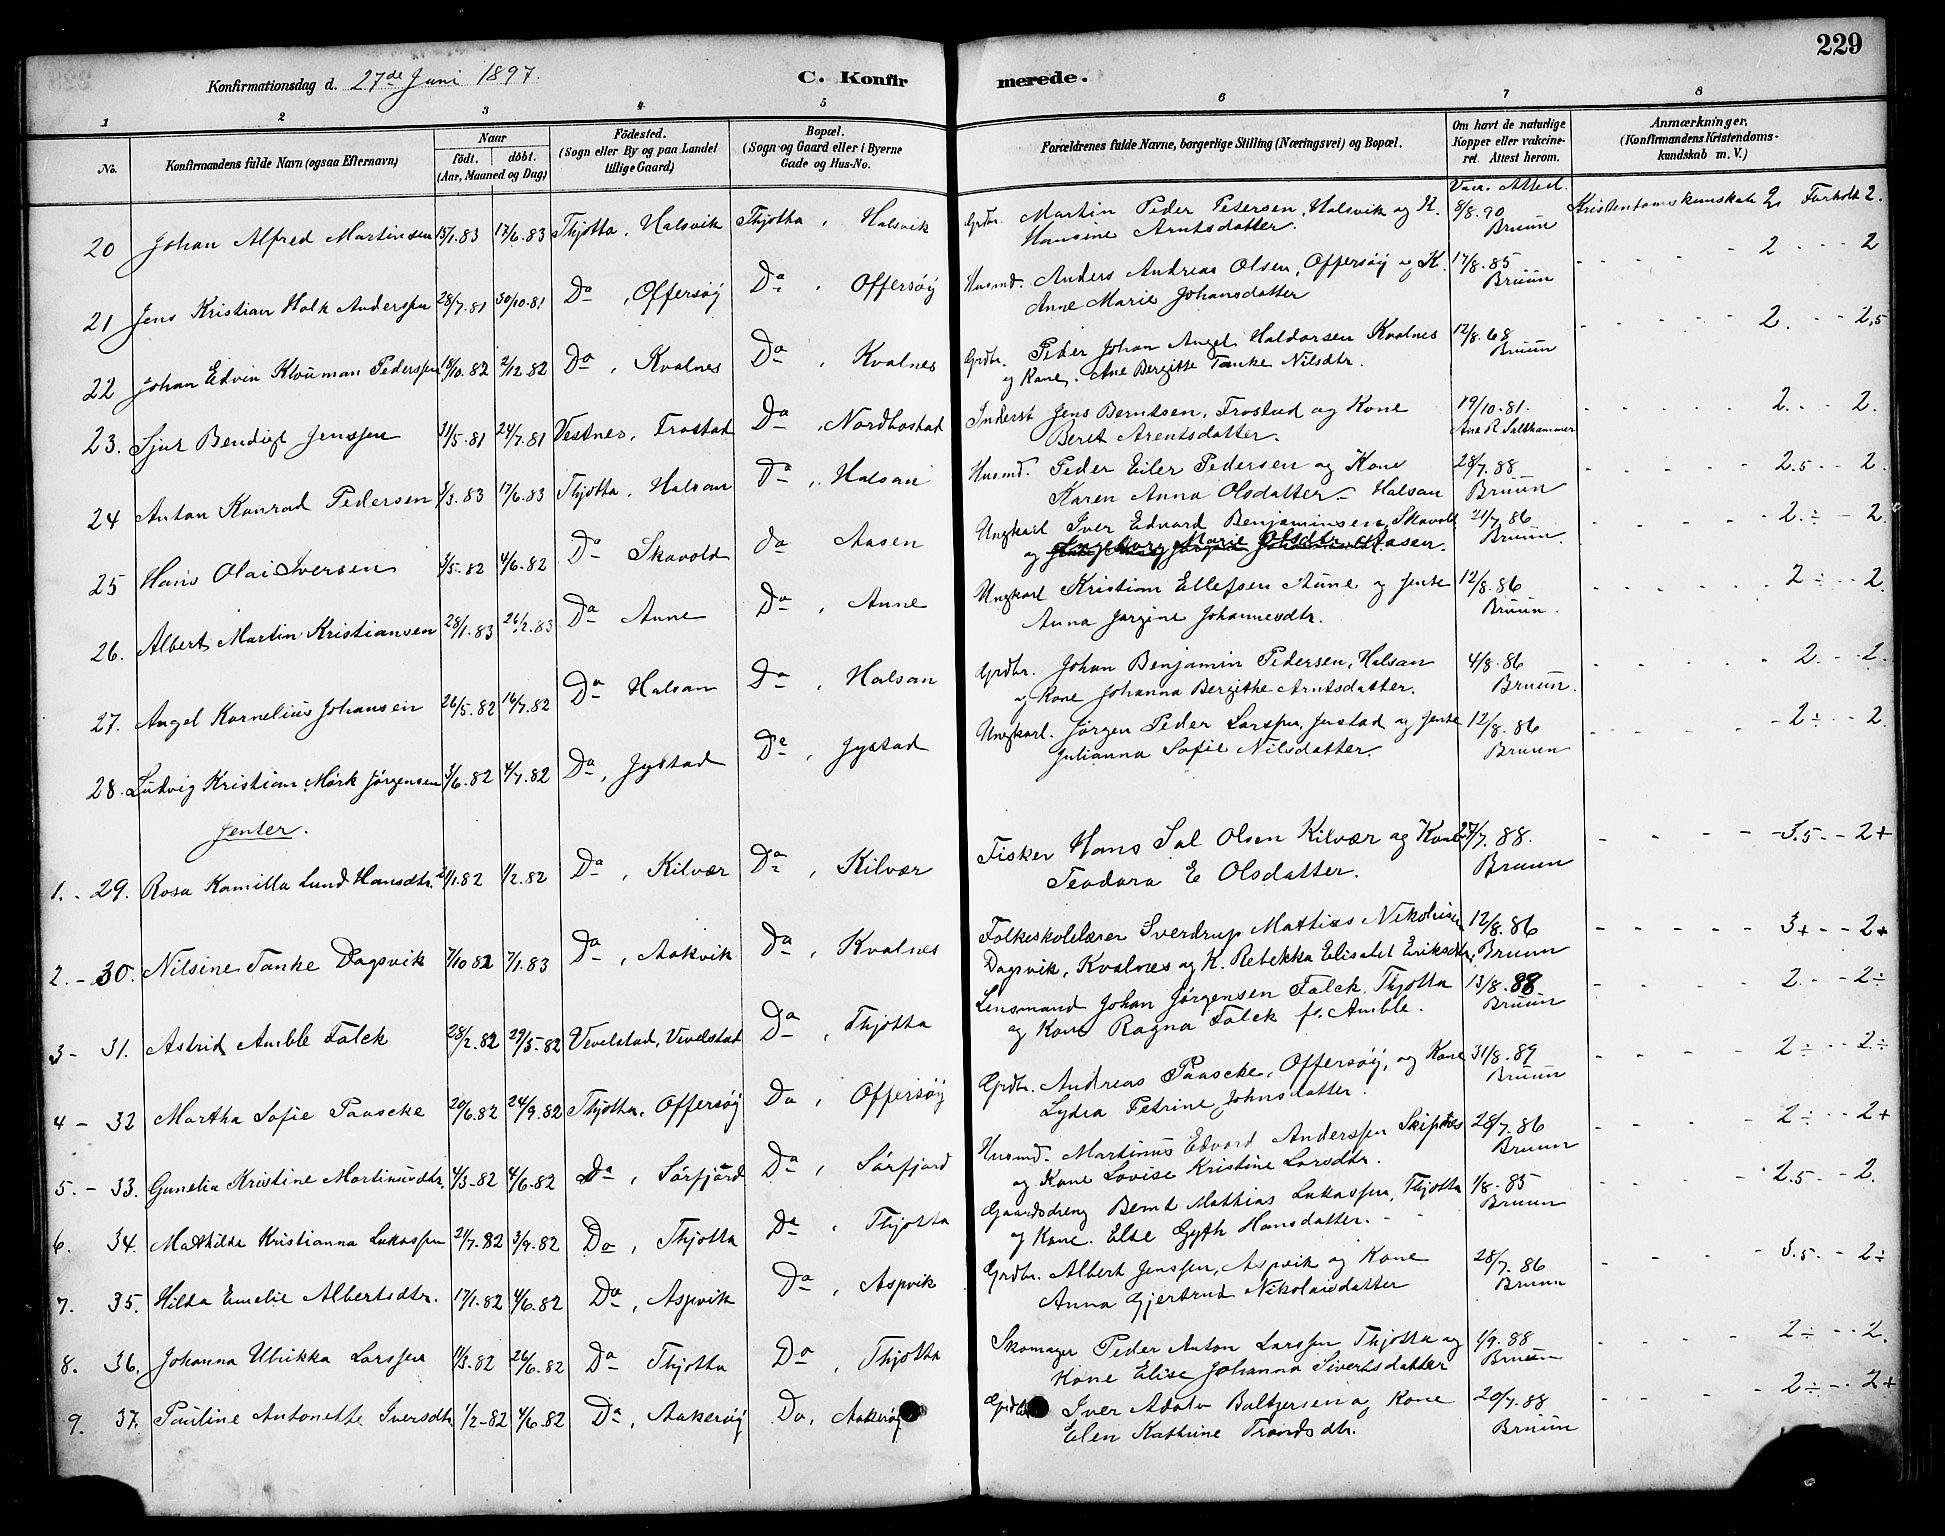 229
Konfirmationsdag d. 27de Juni 1897.
C. Konfirmerede.
1 2 3 4 5 6 7 8
No.
Konfirmandens fulde Navn (ogsaa Efternavn)
Naar
født. døbt.
(Aar, Maaned og Dag)
Fødested.
(Sogn eller By og paa Landet
tillige Gaard)
Bopæl.
(Sogn og Gaard eller i Byerne
Gade og Hus-No.
Forældrenes fulde Navne, borgerlige Stilling (Næringsvei) og Bopæl.
Om havt de naturlige
Kopper eller vakcine-
ret. Attest herom.
Anmærkninger.
(Konfirmandens Kristendoms-
kundskab m. V.)
Vacc. Attest.
20 Johan Alfred Martinsen 15/1.83 17/6.83 Thjøtta, Halsvik Thjøtta, Halsvik Grdbr. Martin Peder Petersen, Halsvik og K. 8/8.90 Kristendomskundskab 2 Forhold 2.
Hansine Arntsdatter. Bruun
21 Jens Kristian Holk Anderssen 28/7.81 30/10.81 Da, Offersøy Da, Offersøy Husmd. Anders Andreas Olsen, Offersøy og K. 17/8.85 2 2
Anne Marie Johansdatter Bruun
22 Johan Edvin Klouman Pederssen 18/10.82 2/12.82 Da, Kvalnes Da, Kvalnes Grdbr. Peder Johan Angel Haldorsen Kvalnes 12/8.68 2. 2,5
og Kone. Ane Bergitte Tanke Nilsdtr. Bruun
23. Sjur Bendigt Jenssen 31/5.81 24/7.81 Vestnes, Frostad Da, Nordbostad Inderst Jens Berntsen, Frostad og Kone 19/10.81. 2. 2.
Beret Arentsdatter. Ane R. Salthammer
24 Anton Konrad Pedersen 3/3.83 17/6.83 Thjøtta, Halsan Da, Halsan Husmd. Peder Eiler Pedersen og Kone 28/7.88 2.5 2.
Karen Anna Olsdatter - Halsan Bruun
25 Hans Olai Iversen 1/5.82 4/6.82 Da Skavold da Aasen Ungkarl Iver Edvard Benjaminsen Skavold 21/7.86 2.÷ 2.
og Ingeborg Marie Olsdtr. Aasen. Bruun.
26. Albert Martin Kristiansen 28/1.83 26/2.83 Da Anne Da, Anne Ungkarl Kristian Ellefsen Aune og Jente 12/8.86 2÷ 2.
Anna Jørgine Johannesdtr. Bruun.
27. Angel Kornelius Johansen 26/5.82 16/7.82 Da Halsan Da, Halsan Grdbr. Johan Benjamin Pedersen, Halsan 4/8.86 2. 2.
og Kone Johanna Bergithe Arntsdatter. Bruun.
28. Ludvig Kristian Mørk Jørgensen 3/6.82 4/7.82 Da, Jystad Da, Jystad Ungkarl. Jørgen Peder Larssen, Jystad og Jente 12/8.86 2÷ 2.
Julianna Sofie Nilsdatter Bruun
Jenter.
1. - 29. Rosa Kamilla Lund Hansdtr. 2/1.82 1/2.82 Da, Kilvær Da, Kilvær Fisker Hans Sal Olsen Kilvær og Kone 27/7.88. 3.5 2+
Teodora E Olsdatter. Bruun
2. - 30. Nilsine Tanke Dagsvik 7/10 82 7/1.83 Da, Aakvik Da, Kvalnes Folkeskolelærer Sverdrup Mattias Nikolaisen 12/8.86 3+ 2+
Dagsvik, Kvalnes og K. Rebekka Elisabet Eriksdtr. Bruun
3 - 31. Astrid Amble Falck 28/2.82 29/5.82 Vevelstad, Vevelstad Da, Thjøtta Lensmand Johan Jørgensen Falck, Thjøtta 13/8.88 2. 2÷
og Kone Ragna Falck f. Amble. Bruun
4 - 32 Martha Sofie Paascke 20/6.82 24/9.82 Thjøtta, Offersøy Da, Offersøy Grdbr. Andreas Paascke, Offersøy, og Kone 31/8.89 2÷ 2.÷
Lydia Petrine Johnsdatter. Bruun
5. - 33. Gunelia Kristine Martinusdtr. 4/3.82 4/6.82 Da, Sørfjord Da, Sørfjord Husmd. Martinus Edvard Anderssen 28/7.86 2÷ 2+
og Kone Lovise Kristine Larsdtr. Bruun
6. 34. Mathilde Kristianna Lukassen 21/7.82 3/9.82 Da, Thjøtta Da, Thjøtta Gaardsdreng Bernt Mathias Lukassen, Thjøtta 1/8.85 2.5 2.
og Kone. Else Gyth Hansdatter. Bruun
7. 35. Hilda Emelie Albertsdtr. 17/1.82 4/6.82 Da, Aspvik Da, Aspvik Grdbr. Albert Jenssen, Aspvik og Kone 28/7.86 3.5 2÷
Anna Gjertrud Nikolaisdatter Bruun
8. 36. Johanna Ulrikka Larssen 11/3.82 26/6.82 Da Thjøtta Da, Thjøtta Skomager Peder Anton Larssen Thjøtta og 1/9.88 2÷ 2.
Kone Elise Johanna Sivertsdatter Bruun
9. 37. Pauline Antonette Iversdtr 1/2-82 4/6.82 Da, Aakerøy Da, Aakerøy Grdbr Iver Adolv Baltzersen og Kone 20/7.88 2÷ 2+
Elen Kathrine Trondsdtr. Bruun